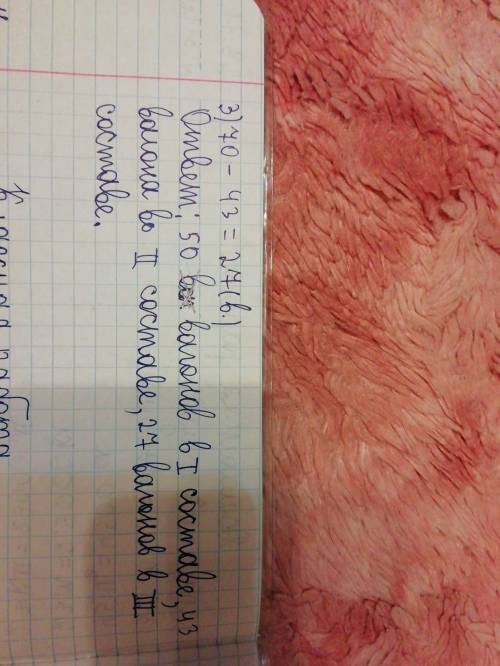 3) 70 - 43 = 27 (в.)
Ответ; 50 вагонов в I составе, 43
вагона во II составе, 27 вагонов в III
составе.
работа